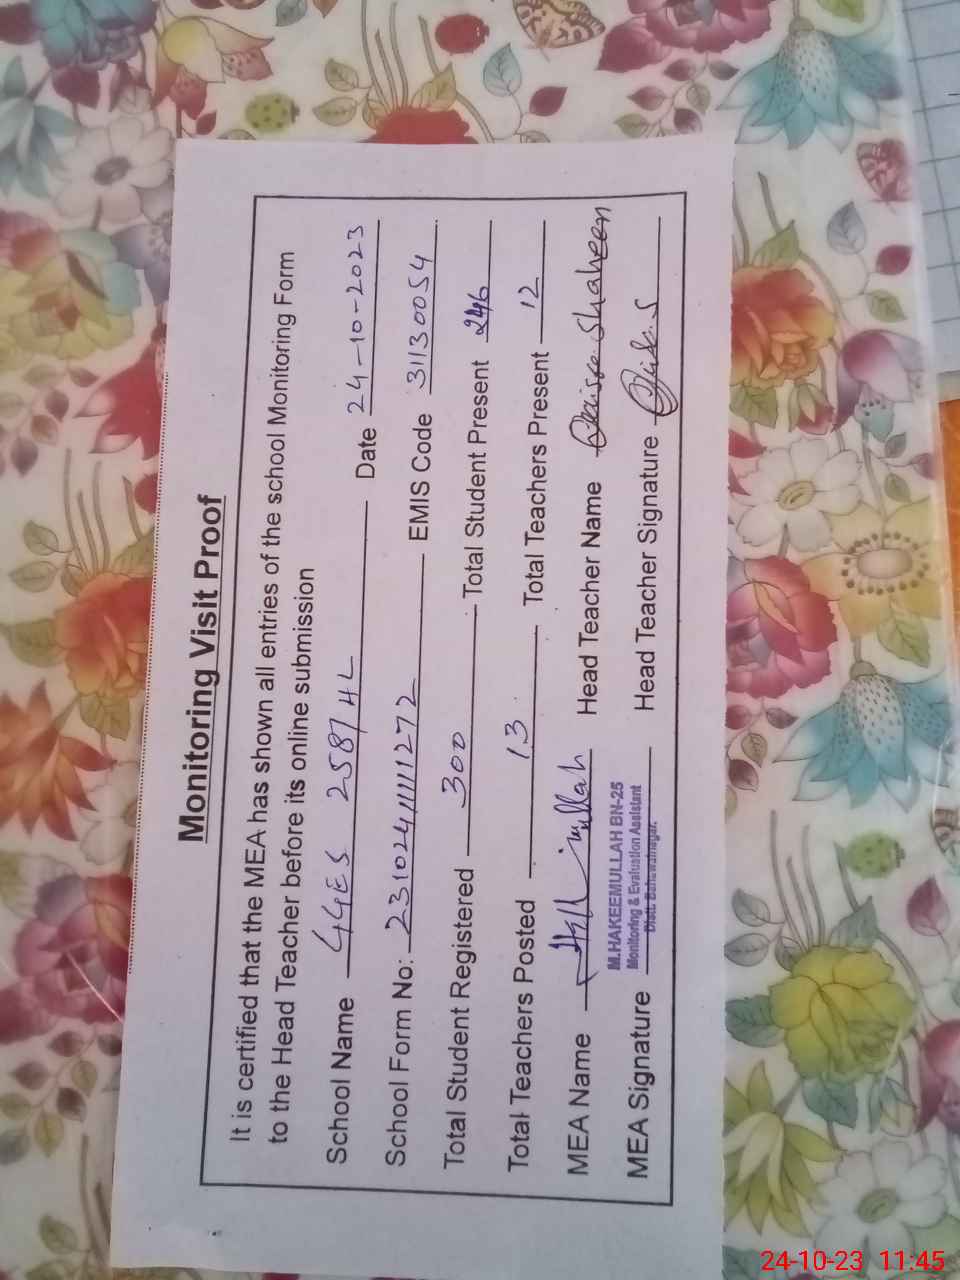 Monitoring Visit Proof
It is certified that the MEA has shown all entries of the school Monitoring Form
to the Head Teacher before its online submission
School Name GGES 258/HL Date 24-10-2023
School Form No: 231024111111272 EMIS Code 31130054
Total Student Registered 300 Total Student Present 246
Total Teachers Posted 13 Total Teachers Present 12
MEA Name Head Teacher Name Shaheen
M.HAKEEMULLAH BN-25
Monitoring & Evaluation Assistant
Distt. Bahawalnagar.
MEA Signature Head Teacher Signature
24-10-23 11:45